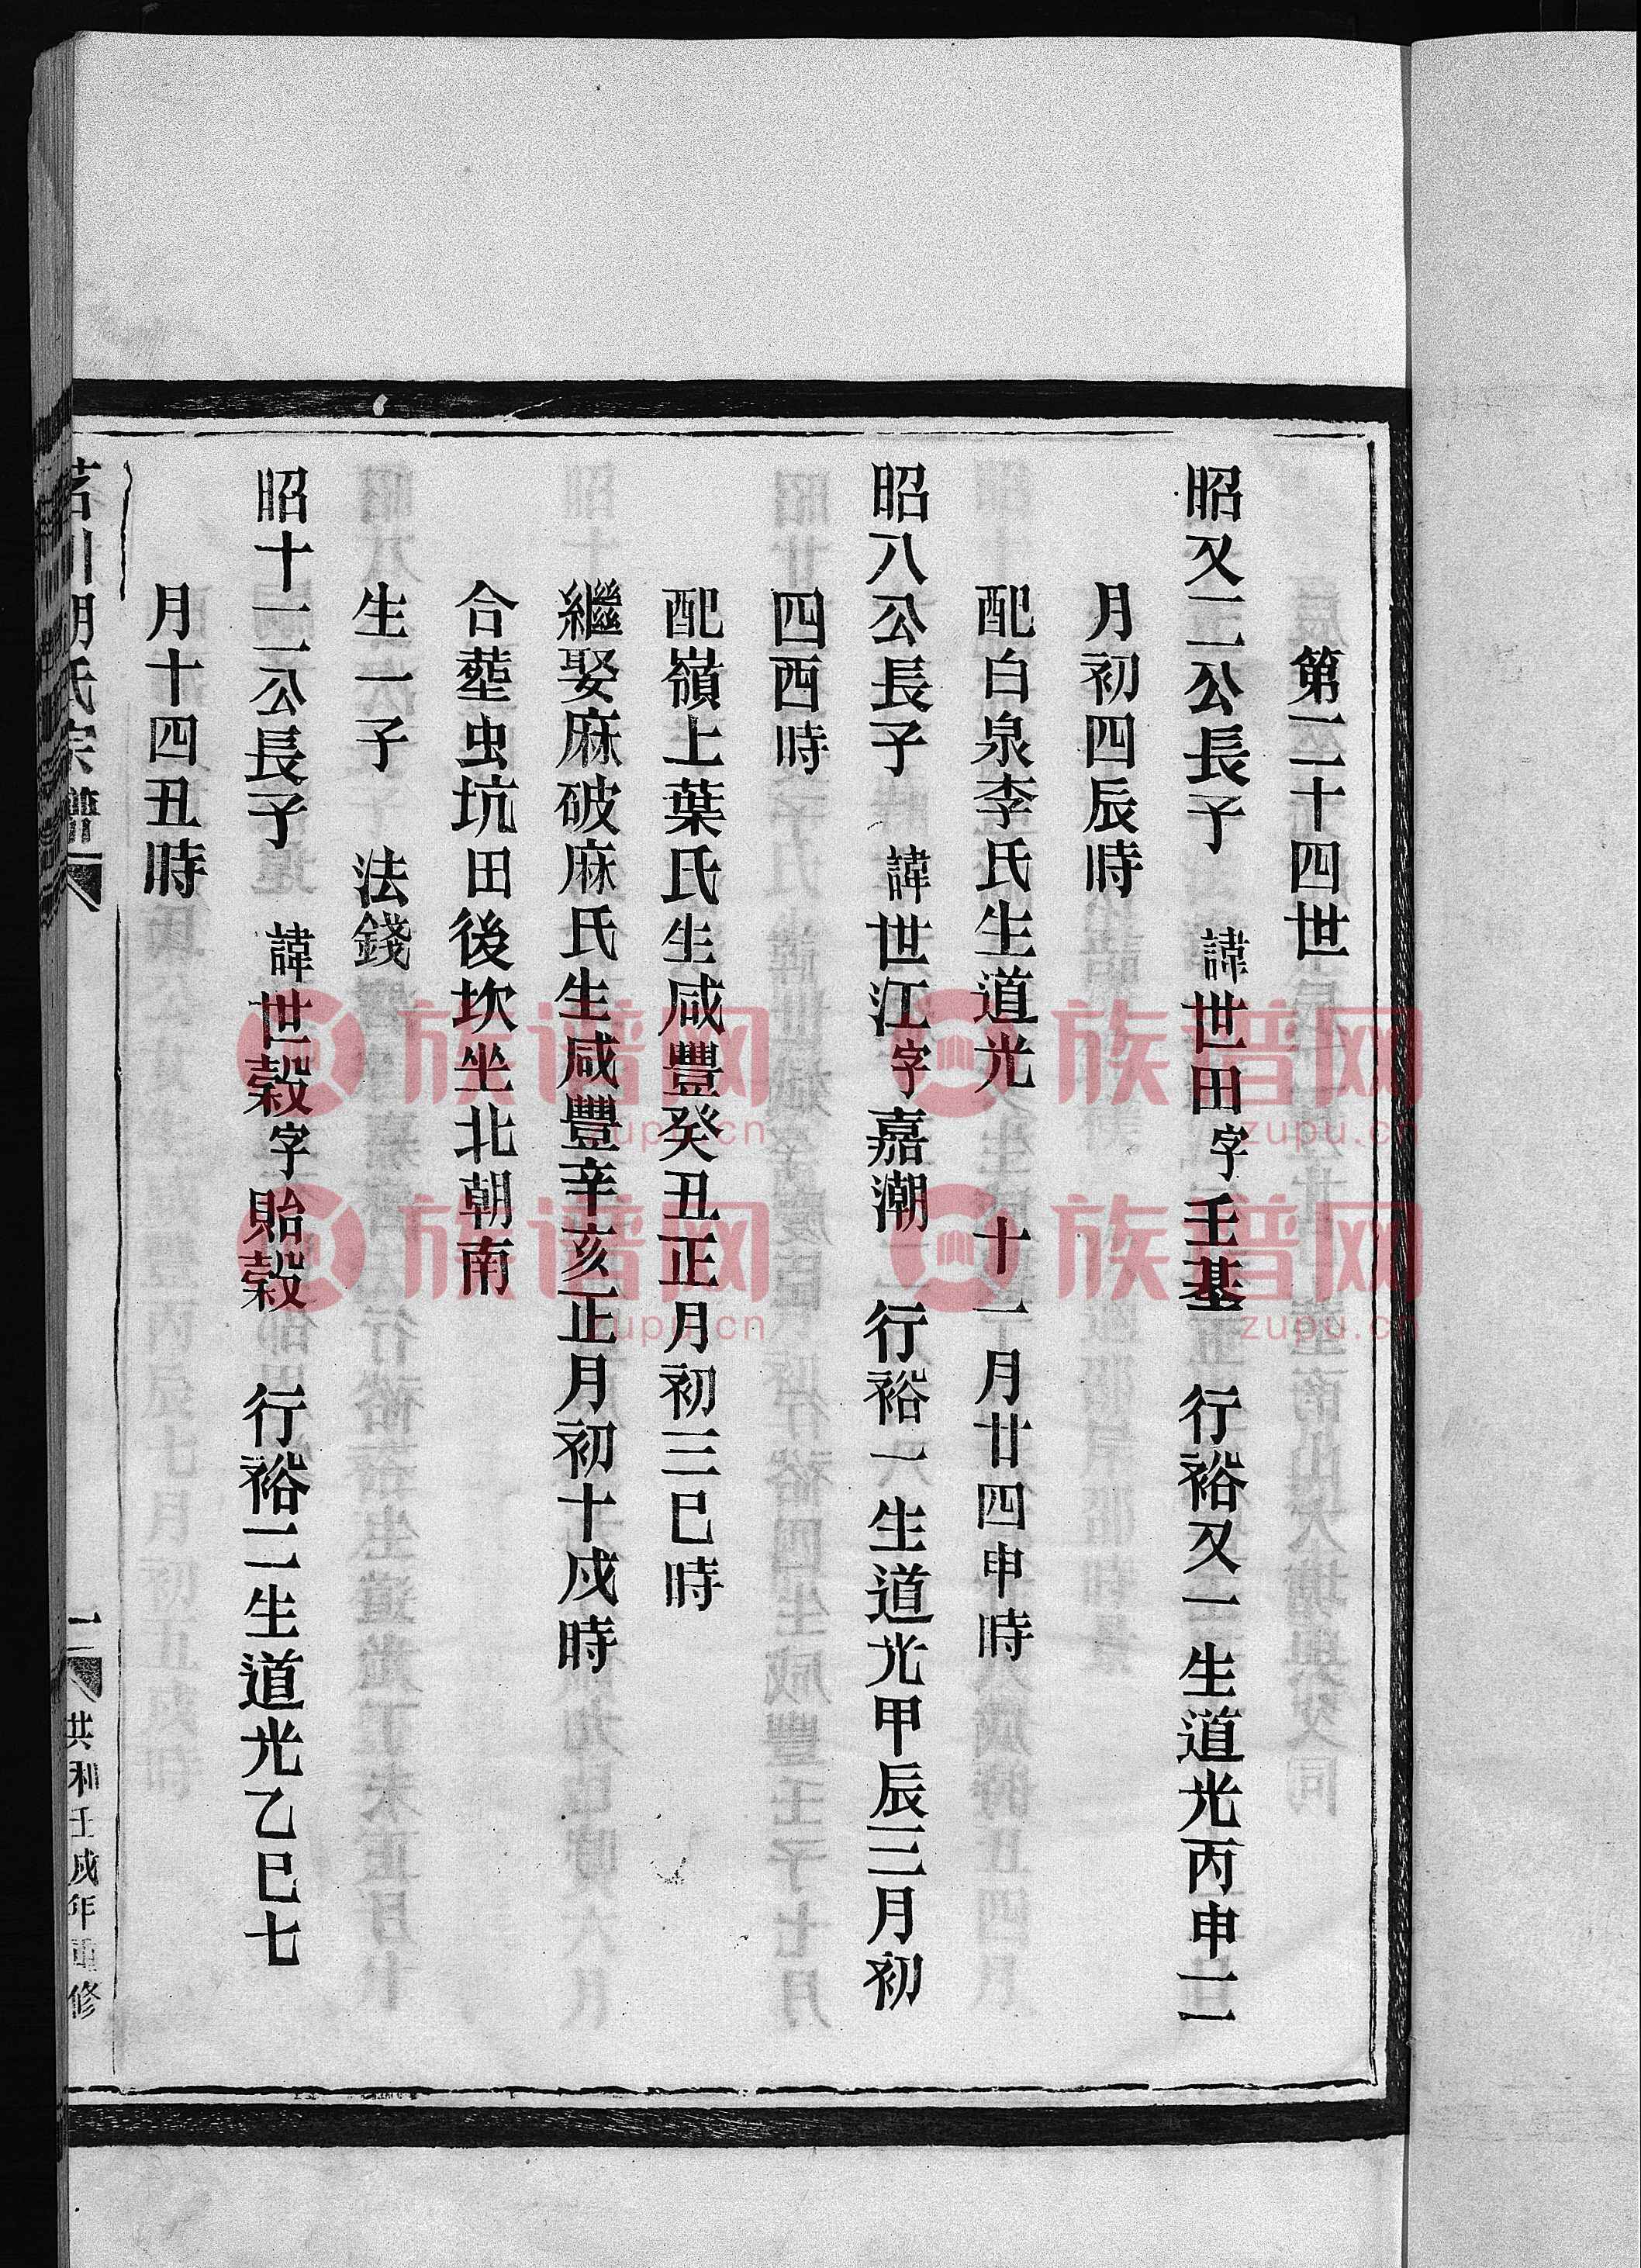 第二十四世
昭又二公長子　諱世田字壬基　行裕又一生道光丙申二
月初四辰時
配白泉李氏生道光　十一月廿四申時
昭八公長子　諱世江字嘉潮　行裕一生道光甲辰三月初
四酉時
配嶺上葉氏生咸豐癸丑正月初三巳時
繼娶麻破麻氏生咸豐辛亥正月初十戌時
合塟虫坑田後坎坐北朝南
生一子　法錢
昭十二公長子　諱世榖字貽榖　行裕二生道光乙巳七
月十四丑時
茗川胡氏宗譜
一
共和壬戌年重修
族谱网
zupu.cn
族谱网
zupu.cn
族谱网
zupu.cn
族谱网
zupu.cn